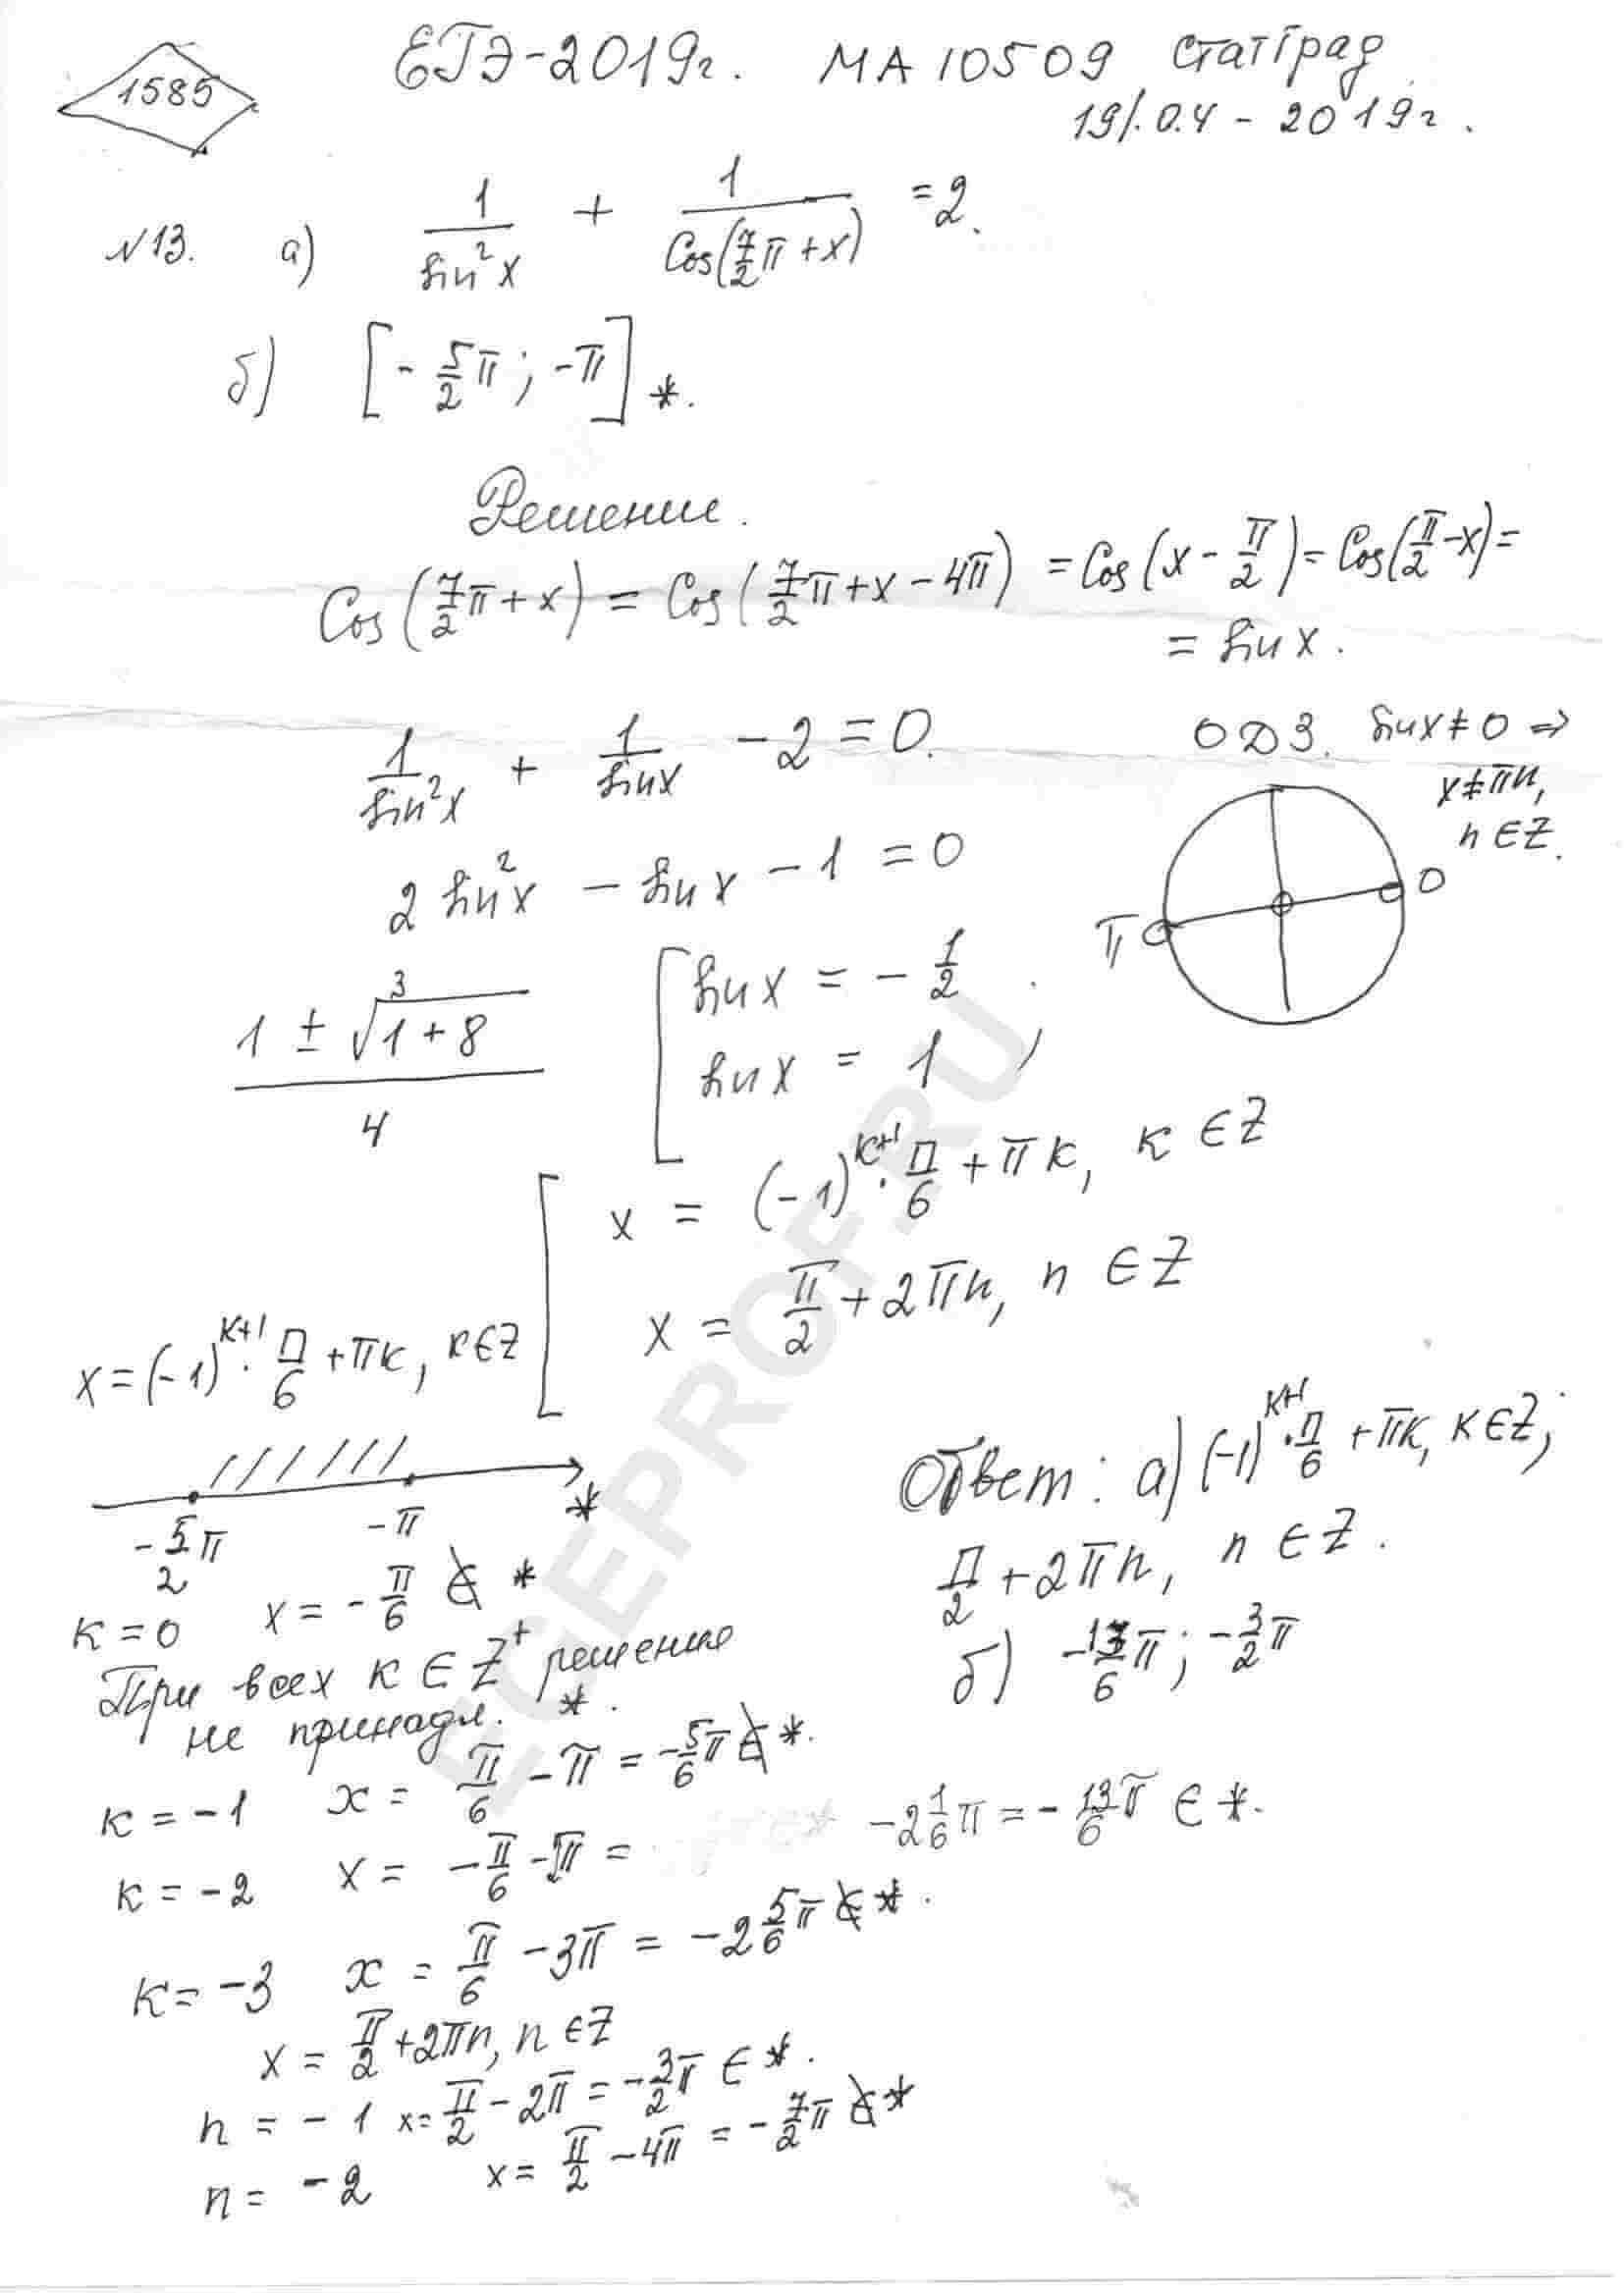 1585
ЕГЭ-2019г. МА10509 СтатГрад
19/.04-2019г.
№13. а) 1/sin²x + 1/Cos(7/2π+x) = 2.
б) [-5/2π; -π] *.
Решение.
Cos(7/2π+x) = Cos(7/2π+x-4π) = Cos(x-π/2) = Cos(π/2-x) =
= sinx.
1/sin²x + 1/sinx - 2 = 0.
ОДЗ. sinx≠0 ⇒
x≠πn,
n∈Z.
2sin²x - sinx - 1 = 0
π 0
1 ± √(1+8) / 4
3
[ sinx = -1/2
sinx = 1
x = (-1)^(k+1)·π/6 + πk, k∈Z
x = π/2 + 2πn, n∈Z
x=(-1)^(k+1)·π/6+πk, k∈Z
-5/2π -π *
Ответ: а) (-1)^(k+1)·π/6+πk, k∈Z;
π/2+2πn, n∈Z.
б) -13/6π; -3/2π
k=0 x=-π/6 ∉ *
При всех k∈Z⁺ решение
не принадл. *.
k=-1 x= π/6-π = -5/6π ∉ *.
k=-2 x= -π/6-2π = -2 1/6π = -13/6π ∈ *.
k=-3 x= π/6-3π = -2 5/6π ∉ *.
x= π/2+2πn, n∈Z
n=-1 x=π/2-2π=-3/2π ∈ *.
n=-2 x=π/2-4π=-7/2π ∉ *
EGEPROF.RU